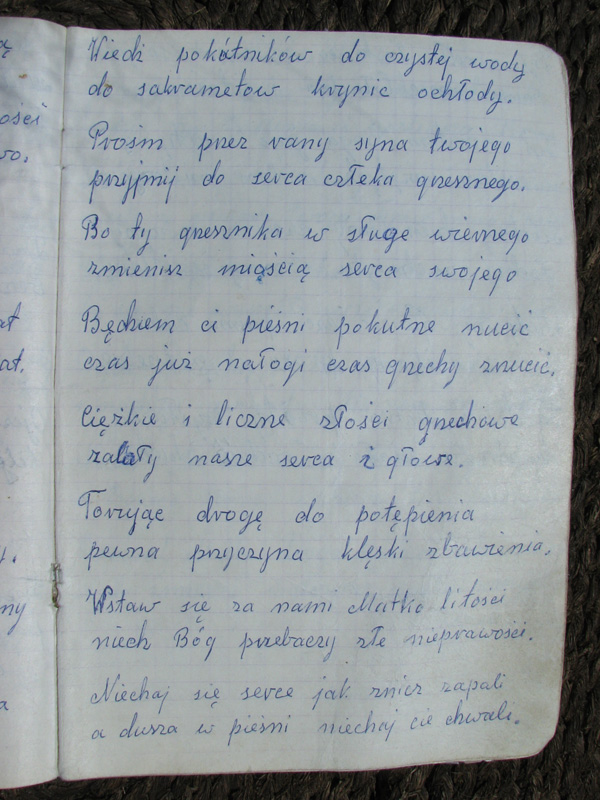 ą
Wiedz pokótników do czystej wody
do sakrametow krynic ochłody.
ości
Prośm przez rany syna twojego
wo.
przyjmij do serca człeka grzesznego.
Bo ty grzesznika w sługę wiernego
zmienisz miąścią serca swojego
at
Będziem ci pieśni pokutne nucić
at.
czas już nałogi czas grzechy zrzucić.
Ciężkie i liczne złości grzechowe
zalały nasze serca i głowe.
Torując drogę do potępienia
y.
pewna przyczyna klęski zbawienia.
ny
Wstaw się za nami Matko litości
niech Bóg przebaczy złe nieprawości.
a
Niechaj się serce jak znicz zapali
a dusza w pieśni niechaj cie chwali.